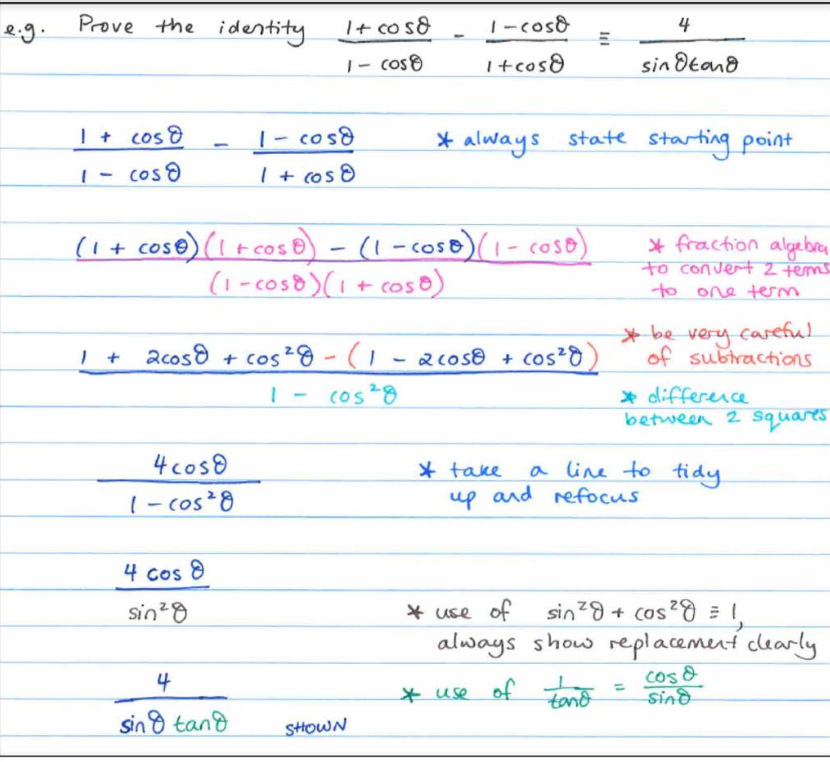 e.g. Prove the identity (1 + cosθ)/(1 - cosθ) - (1 - cosθ)/(1 + cosθ) ≡ 4/(sinθtanθ)
(1 + cosθ)/(1 - cosθ) - (1 - cosθ)/(1 + cosθ) * always state starting point
((1 + cosθ)(1 + cosθ) - (1 - cosθ)(1 - cosθ))/((1 - cosθ)(1 + cosθ))
* fraction algebra
to convert 2 terms
to one term
(1 + 2cosθ + cos²θ - (1 - 2cosθ + cos²θ))/(1 - cos²θ)
* be very careful
of subtractions
* difference
between 2 squares
4cosθ/(1 - cos²θ)
* take a line to tidy
up and refocus
4 cosθ/sin²θ
* use of sin²θ + cos²θ ≡ 1,
always show replacement clearly
4/(sinθ tanθ) SHOWN
* use of 1/tanθ = cosθ/sinθ